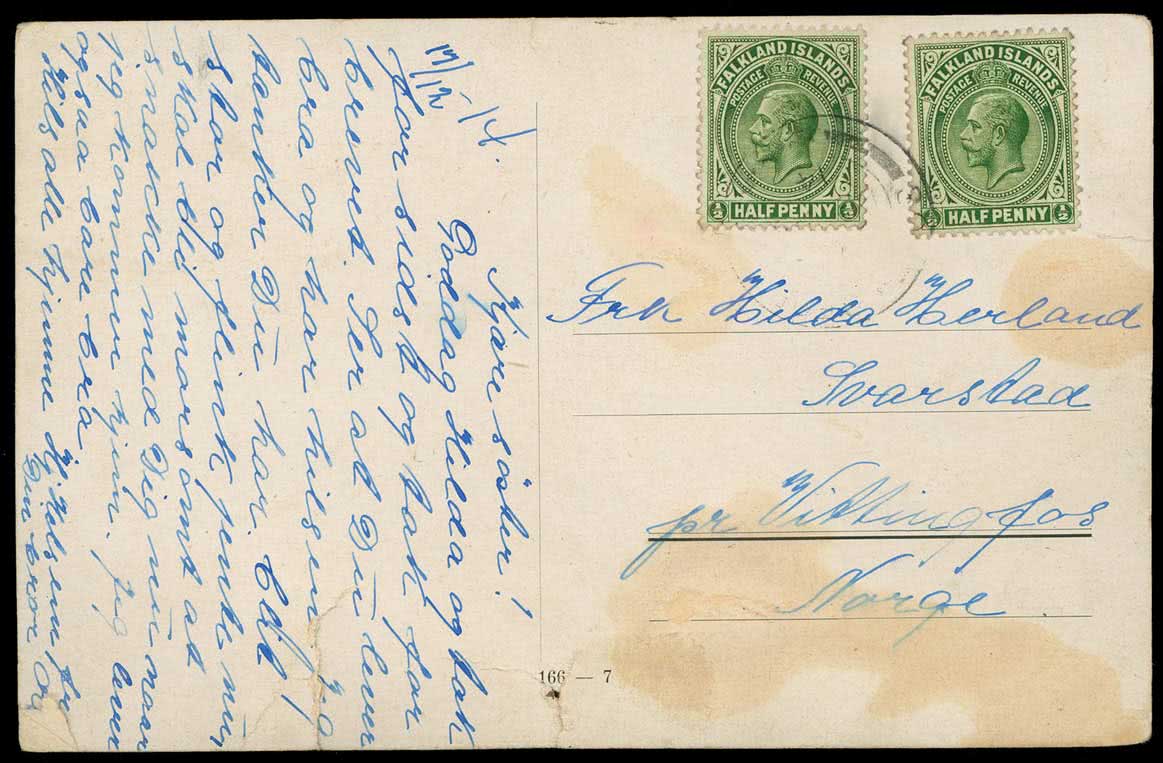 17/12 - 14.
Kjäre söster!
Goddag Hilda og tak
for sidst og tak for
brevet. Ser at Du lever
bra og har hilsen jeg
tenker Du har blit
stor og flink jente nu!
skal bli morsomt at
snakke med Dig nu naar
jeg kommer hjem. Jeg lever
ogsaa bare bra
Hils alle hjemme Hj. Hilsen fr
Din bror
FALKLAND ISLANDS
POSTAGE REVENUE
½ HALFPENNY ½
FALKLAND ISLANDS
POSTAGE REVENUE
½ HALFPENNY ½
Frk Hilda Herland
Svarstad
pr Vittingfos
Norge
166 — 7